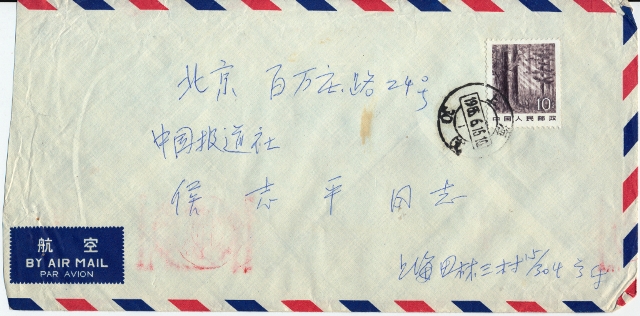 北京 百万庄路24号
中国报道社
信志平同志
上海田林三村
10分
中国人民邮政
1986.6.16.10
上海
航空
BY AIR MAIL
PAR AVION